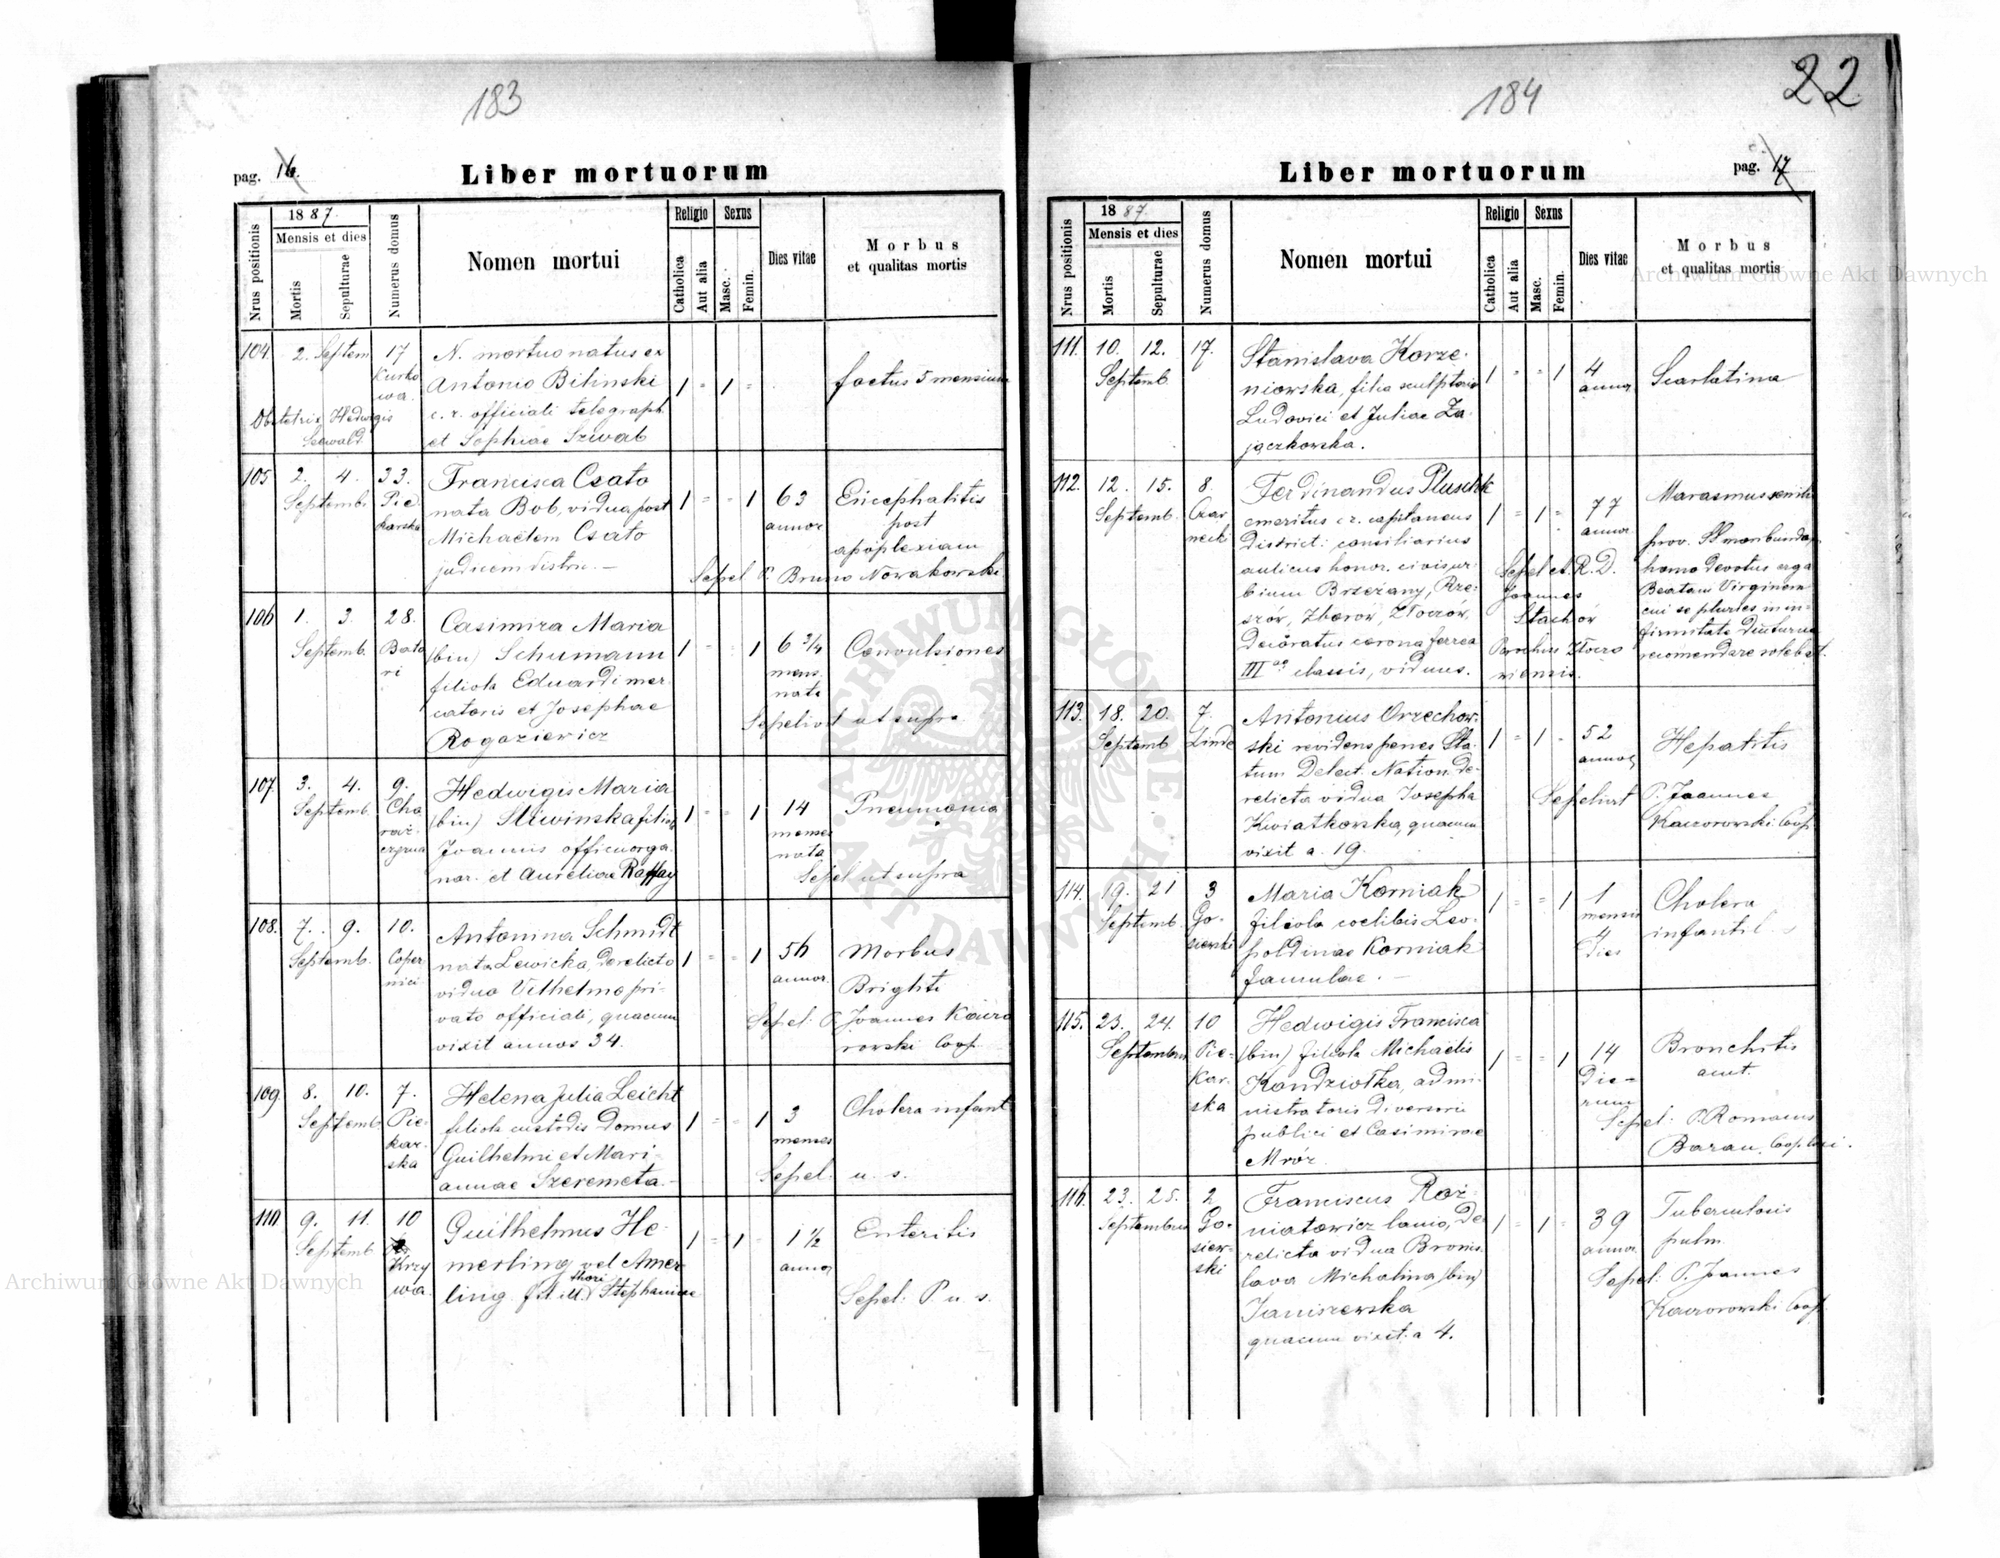 183
pag. 16.
Liber mortuorum
Nrus positionis
1887.
Mensis et dies
Mortis
Sepulturae
Numerus domus
Nomen mortui
Religio
Catholica
Aut alia
Sexus
Masc.
Femin.
Dies vitae
Morbus
et qualitas mortis
104. 2. Septem 17 N. mortuo natus ex
Kurko Antonio Bilinski 1 " 1 " foetus 5 mensium
wa. c. r. officiali telegraph.
Obstetrix Hedwigis et Sophiae Szwab
Seewald
105 2. 4. 33. Francisca Csato
Septemb. Pie nata Bob, vidua post 1 " " 1 63 Encephalitis
karska Michaelem Csato annor post
judicem distri. — apoplexiam
Sepel P. Bruno Nowakowski
106 1. 3. 28. Casimira Maria
Septemb. Bato (bin) Schumann 1 " " 1 6 3/4 Convulsiones
ri filiola Eduardi mer mens.
catoris et Josephae nata
Rogoziewicz Sepelivit ut supra
107 3. 4. 9. Hedwigis Maria
Septemb. Cho (bin) Sliwinska filiola 1 " " 1 14 Pneumonia
rąż Joannis offic. orga menses
czyzna nar. et Aureliae Raffay nata
Sepel ut supra
108. 7. 9. 10. Antonina Schmidt
Septemb. Coper nata Lewicka, derelicto 1 " " 1 56 Morbus
nici viduo Vilhelmo pri- annor. Brighti
vato officiali, quacum Sepel. P. Joannes Kaczo
vixit annos 34. rowski Coop.
109 8. 10. 7. Helena Julia Leicht
Septemb Pie- filiola custodis Domus 1 " " 1 3 Cholera infant
kar- Guilhelmi et Mari- menses
ska annae Szeremeta. — Sepel. u. s.
110. 9. 11. 10 Guilhelmus He-
Septemb Krzy merling vel Amer 1 " 1 " 1 1/2 Enteritis
wa. ling. thori Stephaniae annor
Sepel. P. u. s.
184
22
Liber mortuorum
pag. 17
Nrus positionis
1887.
Mensis et dies
Mortis
Sepulturae
Numerus domus
Nomen mortui
Religio
Catholica
Aut alia
Sexus
Masc.
Femin.
Dies vitae
Morbus
et qualitas mortis
111. 10. 12. 17. Stanislava Korze-
Septemb. niowska, filia sculptoris 1 " " 1 4 Scarlatina
Ludovici et Juliae Za- annor
jączkowska.
112. 12. 15. 8. Ferdinandus Pluschk
Septemb. Czar emeritus c. r. capitaneus 1 " 1 " 77 Marasmus senilis
necki District: consiliarius annor. prov. SS moribundor
aulicus honor. civis ur- Sepel et. R. D. homo devotus erga
bium Brzeżany, Rze- Joannes Beatam Virginem
szów, Zborów, Złoczów, Stachów cui se pluries in in-
Decoratus corona ferrea Parochus Złoczo firmitate diuturna
III ae classis, viduus. viensis. recomendare solebat.
113. 18. 20. 7. Antonius Orzechow-
Septemb Linde ski revidens penes Sta- 1 " 1 " 52 Hepatitis
tum Delect. Nation. de- annor
relicta vidua Josepha Sepelivit P. Joannes
Kwiatkowska, quacum Kaczorowski Coop.
vixit a. 19.
114. 19. 21 3 Maria Korniak
Septemb. Go- filiola coelibis Leo- 1 " " 1 1 Cholera
siewski poldinae Korniak mensis infantil.
famulae. — 4
Dies
115. 23. 24. 10 Hedwigis Francisca
Septembris Pie- (bin) filiola Michaelis 1 " " 1 14 Bronchitis
kar- Kondziołka, admi- Die- acut.
ska nistratoris diversorii rum
publici et Casimirae Sepel: P. Romanus
Mróz. Baran, Coop.
116. 23. 25. 2 Franciscus Roż-
Septembris Go- niatowicz lanio, De 1 " 1 " 39 Tuberculosis
siew- relicta vidua Bronis annor. pulm.
ski lava Michalina (bin) Sepel: P. Joannes
Janiszewska Kaczorowski Coop.
quacum vixit a 4.
Archiwum Główne Akt Dawnych
Archiwum Główne Akt Dawnych
ARCHIWUM GŁÓWNE AKT DAWNYCH